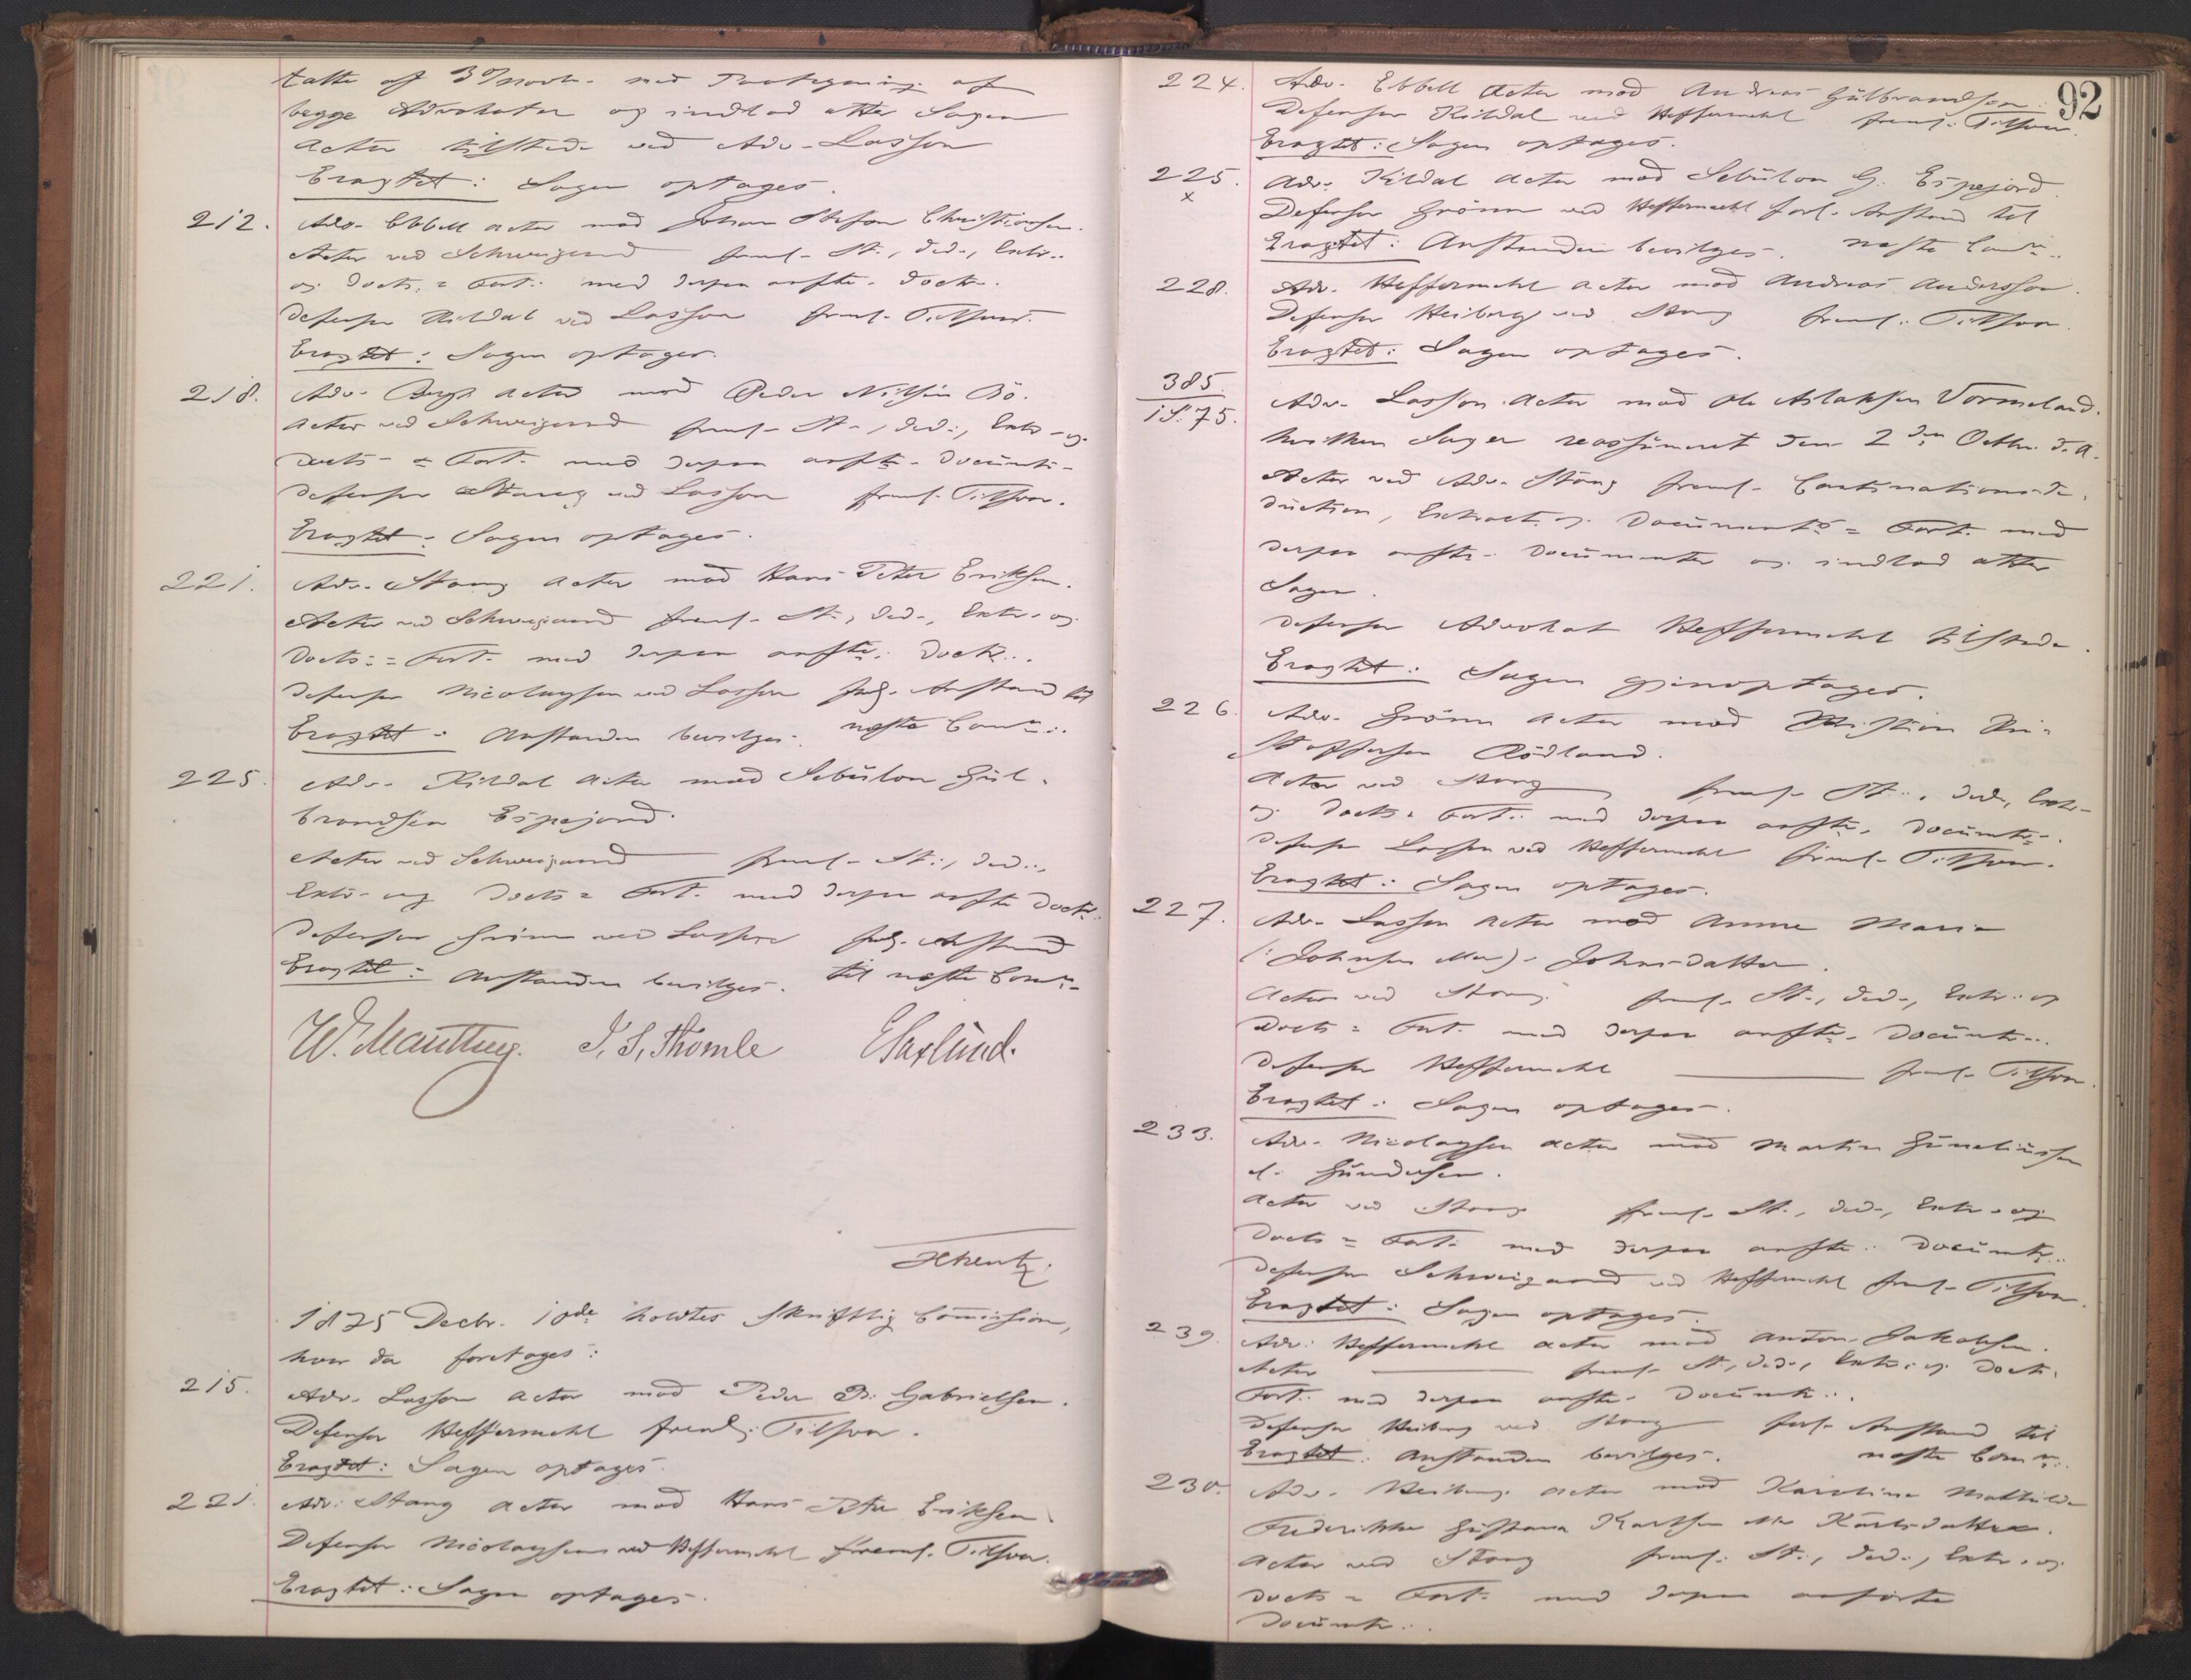 tatte af 3die Novbr. med Paategning af
begge Advokater og indlod atter Sagen
Actor tilstede ved Adv. Lasson
Eragtet: Sagen optages.
212. Adv. Ebbell actor mod Johan Christiansen.
Actor ved Schweigaard freml. St., Ded., Extr.
og Docts. = Fort. med derpaa anfte. Docts.
Defensor Kildal ved Lasson freml. Tilsvar.
Eragtet: Sagen optages.
218. Adv. Bergh actor mod Peder Nilsen Bö.
Actor ved Schweigaard freml. St., Ded., Extr. og
Docts = Fort. med derpaa anfte. Documtr.
Defensor Stang ved Lasson freml. Tilsvar.
Eragtet: Sagen optages.
221. Adv. Stang actor mod Hans Peter Eriksen.
Actor ved Schweigaard freml. St., Ded., Extr. og
Docts. = Fort. med derpaa anfte. Doctr.
Defensor Nicolaysen ved Lasson forl. Anstand til
Eragtet: Anstanden bevilges. næste Comn.
225. Adv. Kildal actor mod Sebülon Gül-
brandsen Espejord.
Actor ved Schweigaard freml. St., Ded.,
Extr. og Docts = Fort. med derpaa anfte Doctr.
Defensor Grönn ved Lasson forl. Anstand
Eragtet: Anstanden bevilges. til næste Comn.
W. Manthey. J. S. Thomle E Saxlünd.
1875 Decbr. 10de holdtes skriftlig Commission,
hvor da foretoges:
215. Adv. Lasson actor mod Peder P. Gabrielsen.
Defensor Heffermehl freml. Tilsvar.
Eragtet: Sagen optages.
221. Adv. Stang actor mod Hans Peter Eriksen
Defensor Nicolaysen ved Heffermehl freml. Tilsvar.
Eragtet: Sagen optages.
92
224. Adv. Ebbell Actor mod Andreas Gülbrandsen.
Defensor Kildal ved Heffermehl freml. Tilsvar.
Eragtet: Sagen optages.
225. Adv. Kildal actor mod Sebülon G. Espejord
x
Defensor Grönn ved Heffermehl forl. Anstand til
Eragtet: Anstanden bevilges. næste Comn.
228. Adv. Heffermehl actor mod Andreas Andersson.
Defensor Heiberg ved Stang freml. Tilsvar.
Eragtet: Sagen optages.
385.
1S. 75. Adv. Lasson actor mod Ole Aslaksen Vormeland.
hvilken Sag er reassümeret den 2den Octbr. d. A.
Actor ved Adv. Stang freml. Continuations-De-
düction, Extract og Documents = Fort. med
derpaa anfte. Documenter og indlod atter
Sagen.
Defensor Advokat Heffermehl tilstede.
Eragtet: Sagen gjenoptages.
226. Adv. Grönn actor mod Kristian Kri-
stoffersen Rödland.
Actor ved Stang freml. St., Ded., Extr.
og Docts. = Fort. med derpaa anfte. Documtr.
Defensor Lasson ved Heffermehl freml. Tilsvar.
Eragtet: Sagen optages.
227. Adv. Lasson actor mod Anne Maria
(: Johnsen eller) Johnsdatter.
Actor ved Stang freml. St., Ded., Extr. og
Docts = Fort. med derpaa anfte. Documtr.
Defensor Heffermehl freml. Tilsvar.
Eragtet: Sagen optages.
233. Adv. Nicolaysen actor mod Martin
el. Gündersen.
Actor ved Stang freml. St., Ded., Extr. og
Docts = Fort. med derpaa anfte. Documtr.
Defensor Schweigaard ved Heffermehl freml. Tilsvar.
Eragtet: Sagen optages.
239. Adv. Heffermehl actor mod Anton Jakobsen.
Actor freml. St., Ded., Extr. og Docts.
Fort. med derpaa anfte. Documtr.
Defensor Heiberg ved Stang forl. Anstand til
Eragtet: Anstanden bevilges. næste Comn.
230. Adv. Heiberg actor mod Karoline Mathilde
Frederikke Güstava Karlsen eller Karlsdatter.
Actor ved Stang freml. St., Ded., Extr. og
Docts = Fort. med derpaa anförte
Documtr.